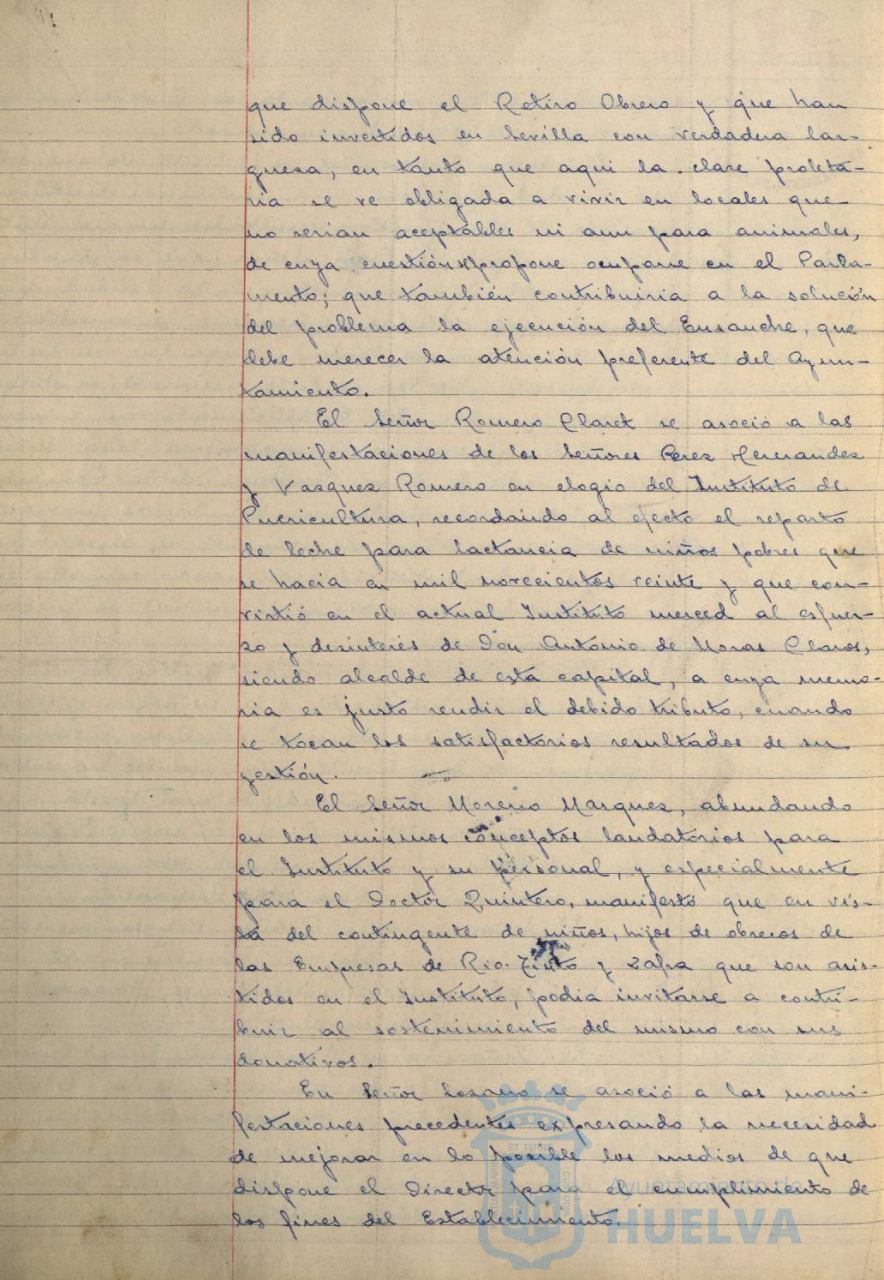 que dispone el Retiro Obrero y que han
sido invertidos en Sevilla con verdadera lar-
gueza, en tanto que aqui la clase proleta-
ria se ve obligada a vivir en locales que
no serian aceptables ni aun para animales,
de cuya cuestión se propone ocuparse en el Parla-
mento; que también contribuiria a la solución
del problema la ejecución del Ensanche, que
debe merecer la atención preferente del Ayun-
tamiento.
El Señor Romero Claret se asoció a las
manifestaciones de los Señores Perez Hernandez
y Vasquez Romero en elogio del Instituto de
Puericultura, recordando al efecto el reparto
de leche para lactancia de niños pobres que
se hacia en mil novecientos veinte y que con-
virtió en el actual Instituto merced al esfuer-
zo y desinterés de Don Antonio de Moras Claros,
siendo alcalde de esta capital, a cuya memo-
ria es justo rendir el debido tributo, cuando
se tocan los satisfactorios resultados de su
gestión.
El Señor Moreno Marquez, abundando
en los mismos conceptos laudatorios para
el Instituto y su personal, y especialmente
para el Doctor Quintero, manifestó que en vis-
ta del contingente de niños, hijos de obreros de
las Empresas de Rio-Tinto y Zafra que son asis-
tidos en el Instituto, podia invitarse a contri-
buir al sostenimiento del mismo con sus
donativos.
En Señor Lozano se asoció a las mani-
festaciones precedentes expresando la necesidad
de mejorar en lo posible los medios de que
dispone el Director para el cumplimiento de
los fines del Establecimiento.
Ayuntamiento de
HUELVA